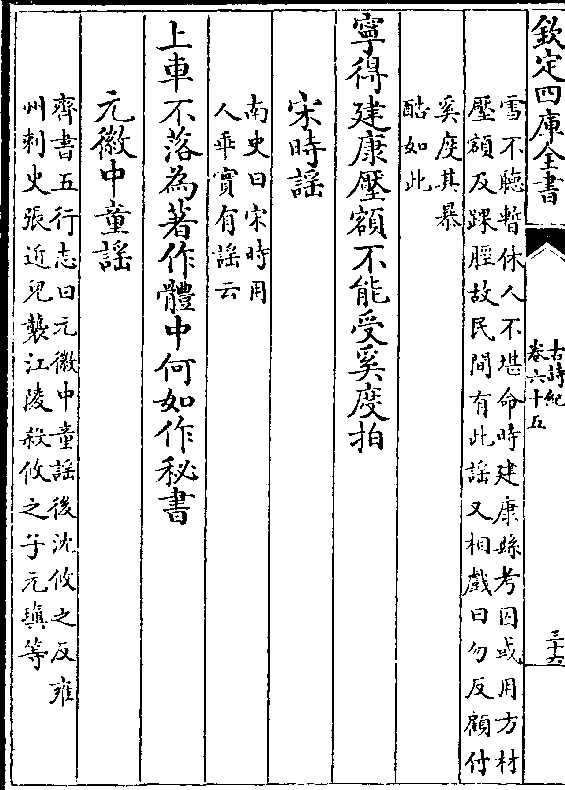 欽定四庫全書
古詩紀
卷六十五
三十六
雪不聽暫休人不堪命時建康縣考囚或用方材
壓額及踝脛故民間有此謡又相戲曰勿反顧付
奚度其暴
酷如此
寧得建康壓額不能受奚度拍
宋時謡
南史曰宋時用
人乖實有謡云
上車不落為著作體中何如作秘書
元徽中童謡
齊書五行志曰元徽中童謡後沈攸之反雍
州刺史張近兒襲江陵殺攸之子元琰等